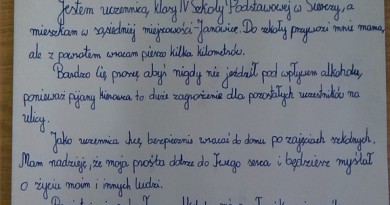 Jestem uczennicą, klasy IV Szkoły Podstawowej w Siewierzy, a
mieszkam w sąsiedniej miejscowości Janowice. Do szkoły przywozi mnie mama,
ale z powrotem wracam pieszo kilka kilometrów.
Bardzo Cię proszę abyś nigdy nie jeździł pod wpływem alkoholu,
ponieważ pijany kierowca to duże zagrożenie dla pozostałych uczestników na
ulicy.
Jako uczennica chcę bezpiecznie wracać do domu po zajęciach szkolnych.
Mam nadzieję, że moja prośba dotrze do Twego serca i będziesz myślał
o życiu moim i innych ludzi.